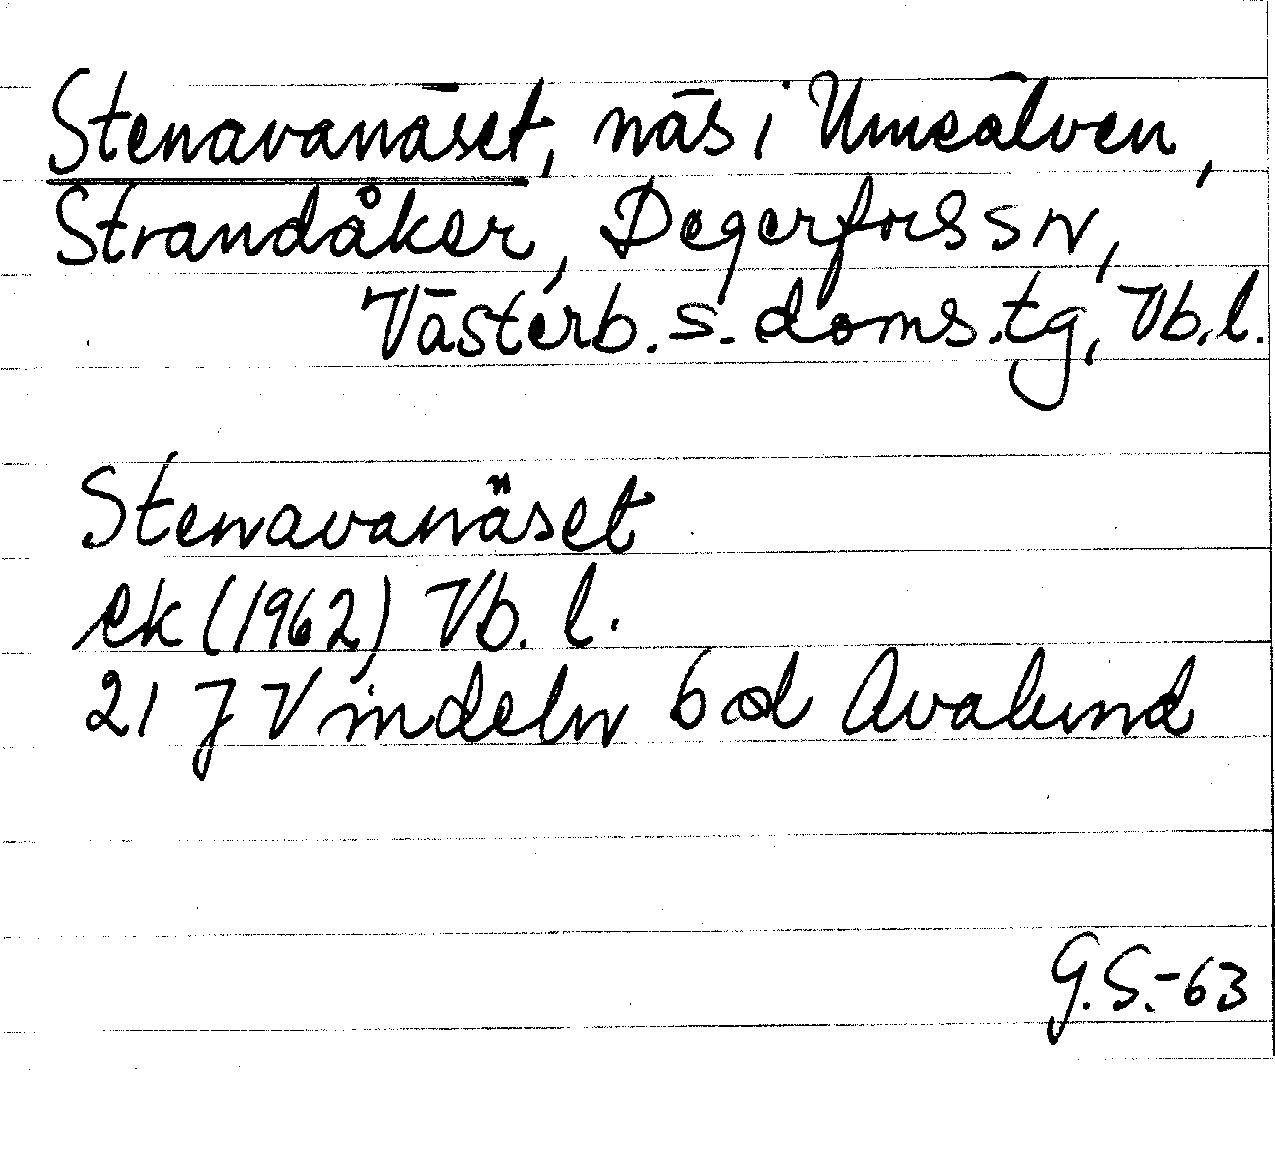 Stenavanäset, näs i Umeälven,
Strandåker, Degerfors sn,
Västerb. s. doms. tg, Vb. l.
Stenavanäset
ek (1962) Vb. l.
21 J Vindeln 6 d Avalund
G.S.-63